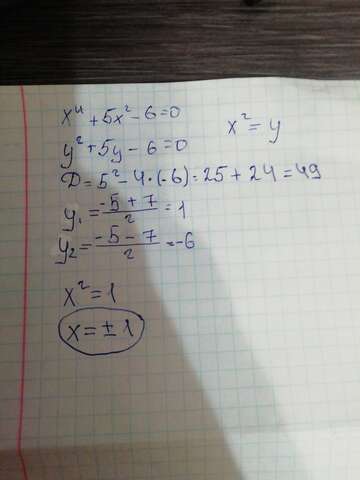 x⁴ + 5x² - 6 = 0
x² = y
y² + 5y - 6 = 0
D = 5² - 4 · (-6) = 25 + 24 = 49
y₁ = (-5 + 7)/2 = 1
y₂ = (-5 - 7)/2 = -6
x² = 1
x = ± 1